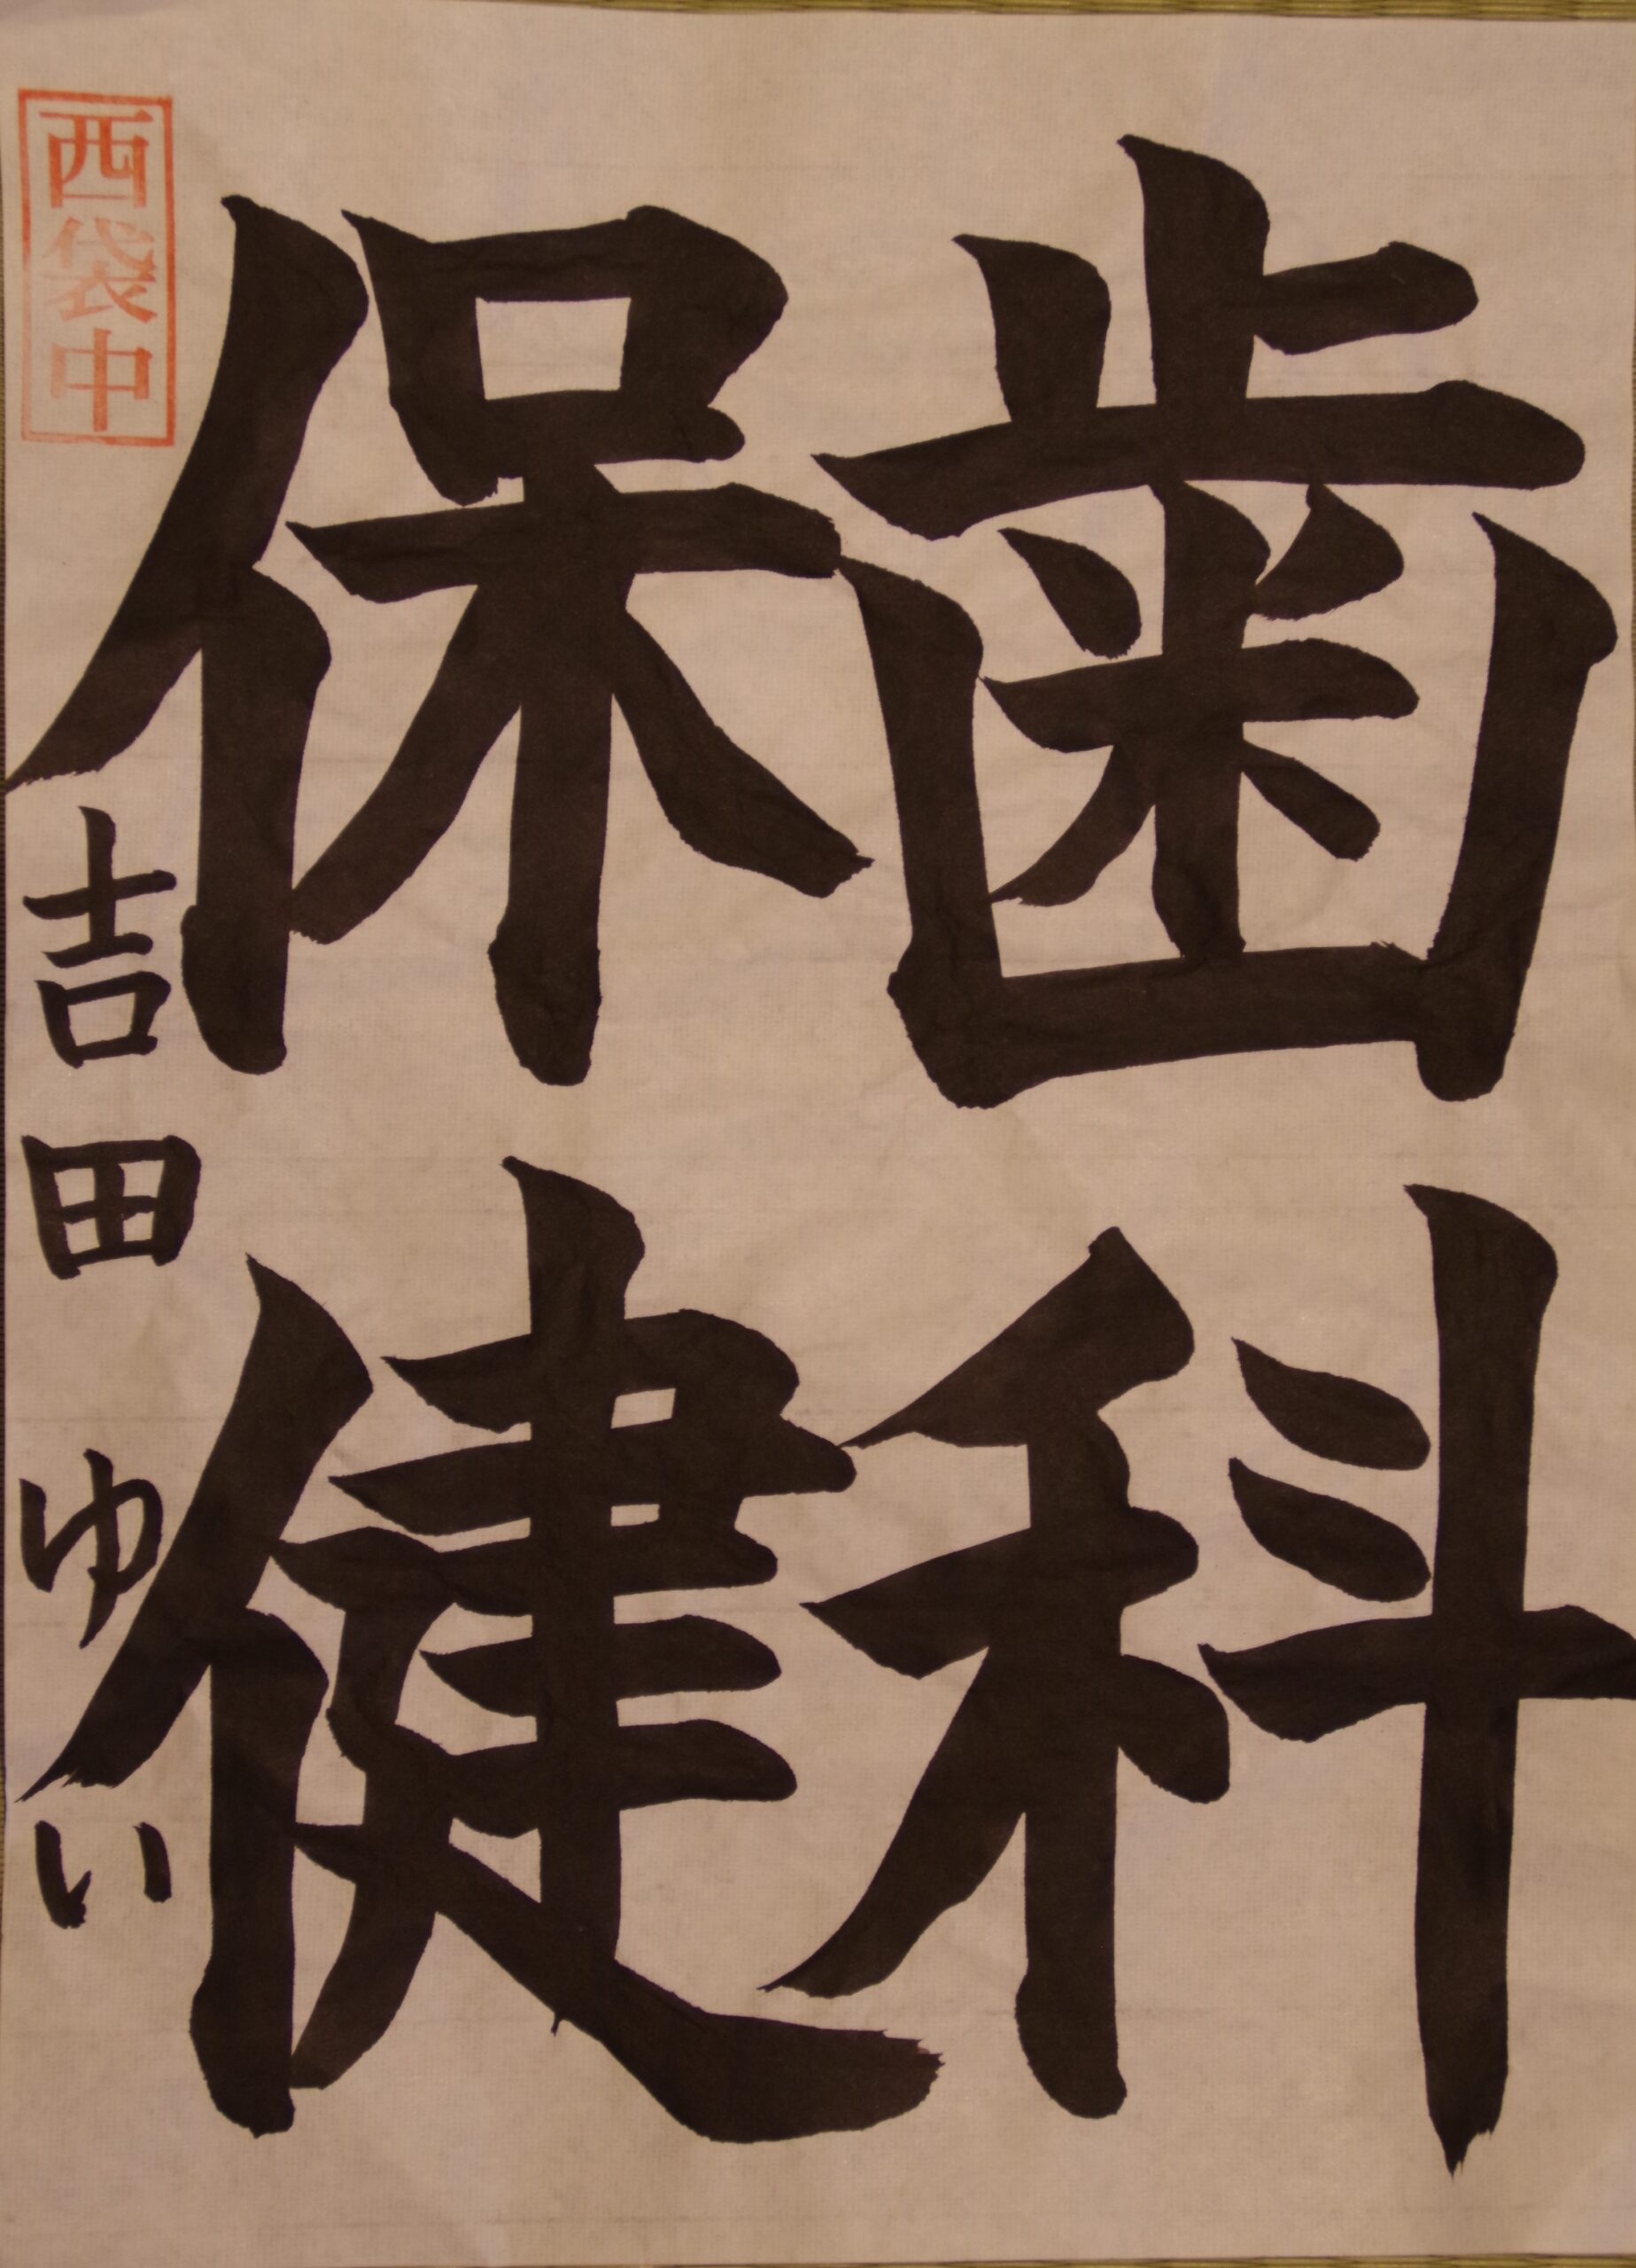 歯科
保健
西袋中
吉田ゆい